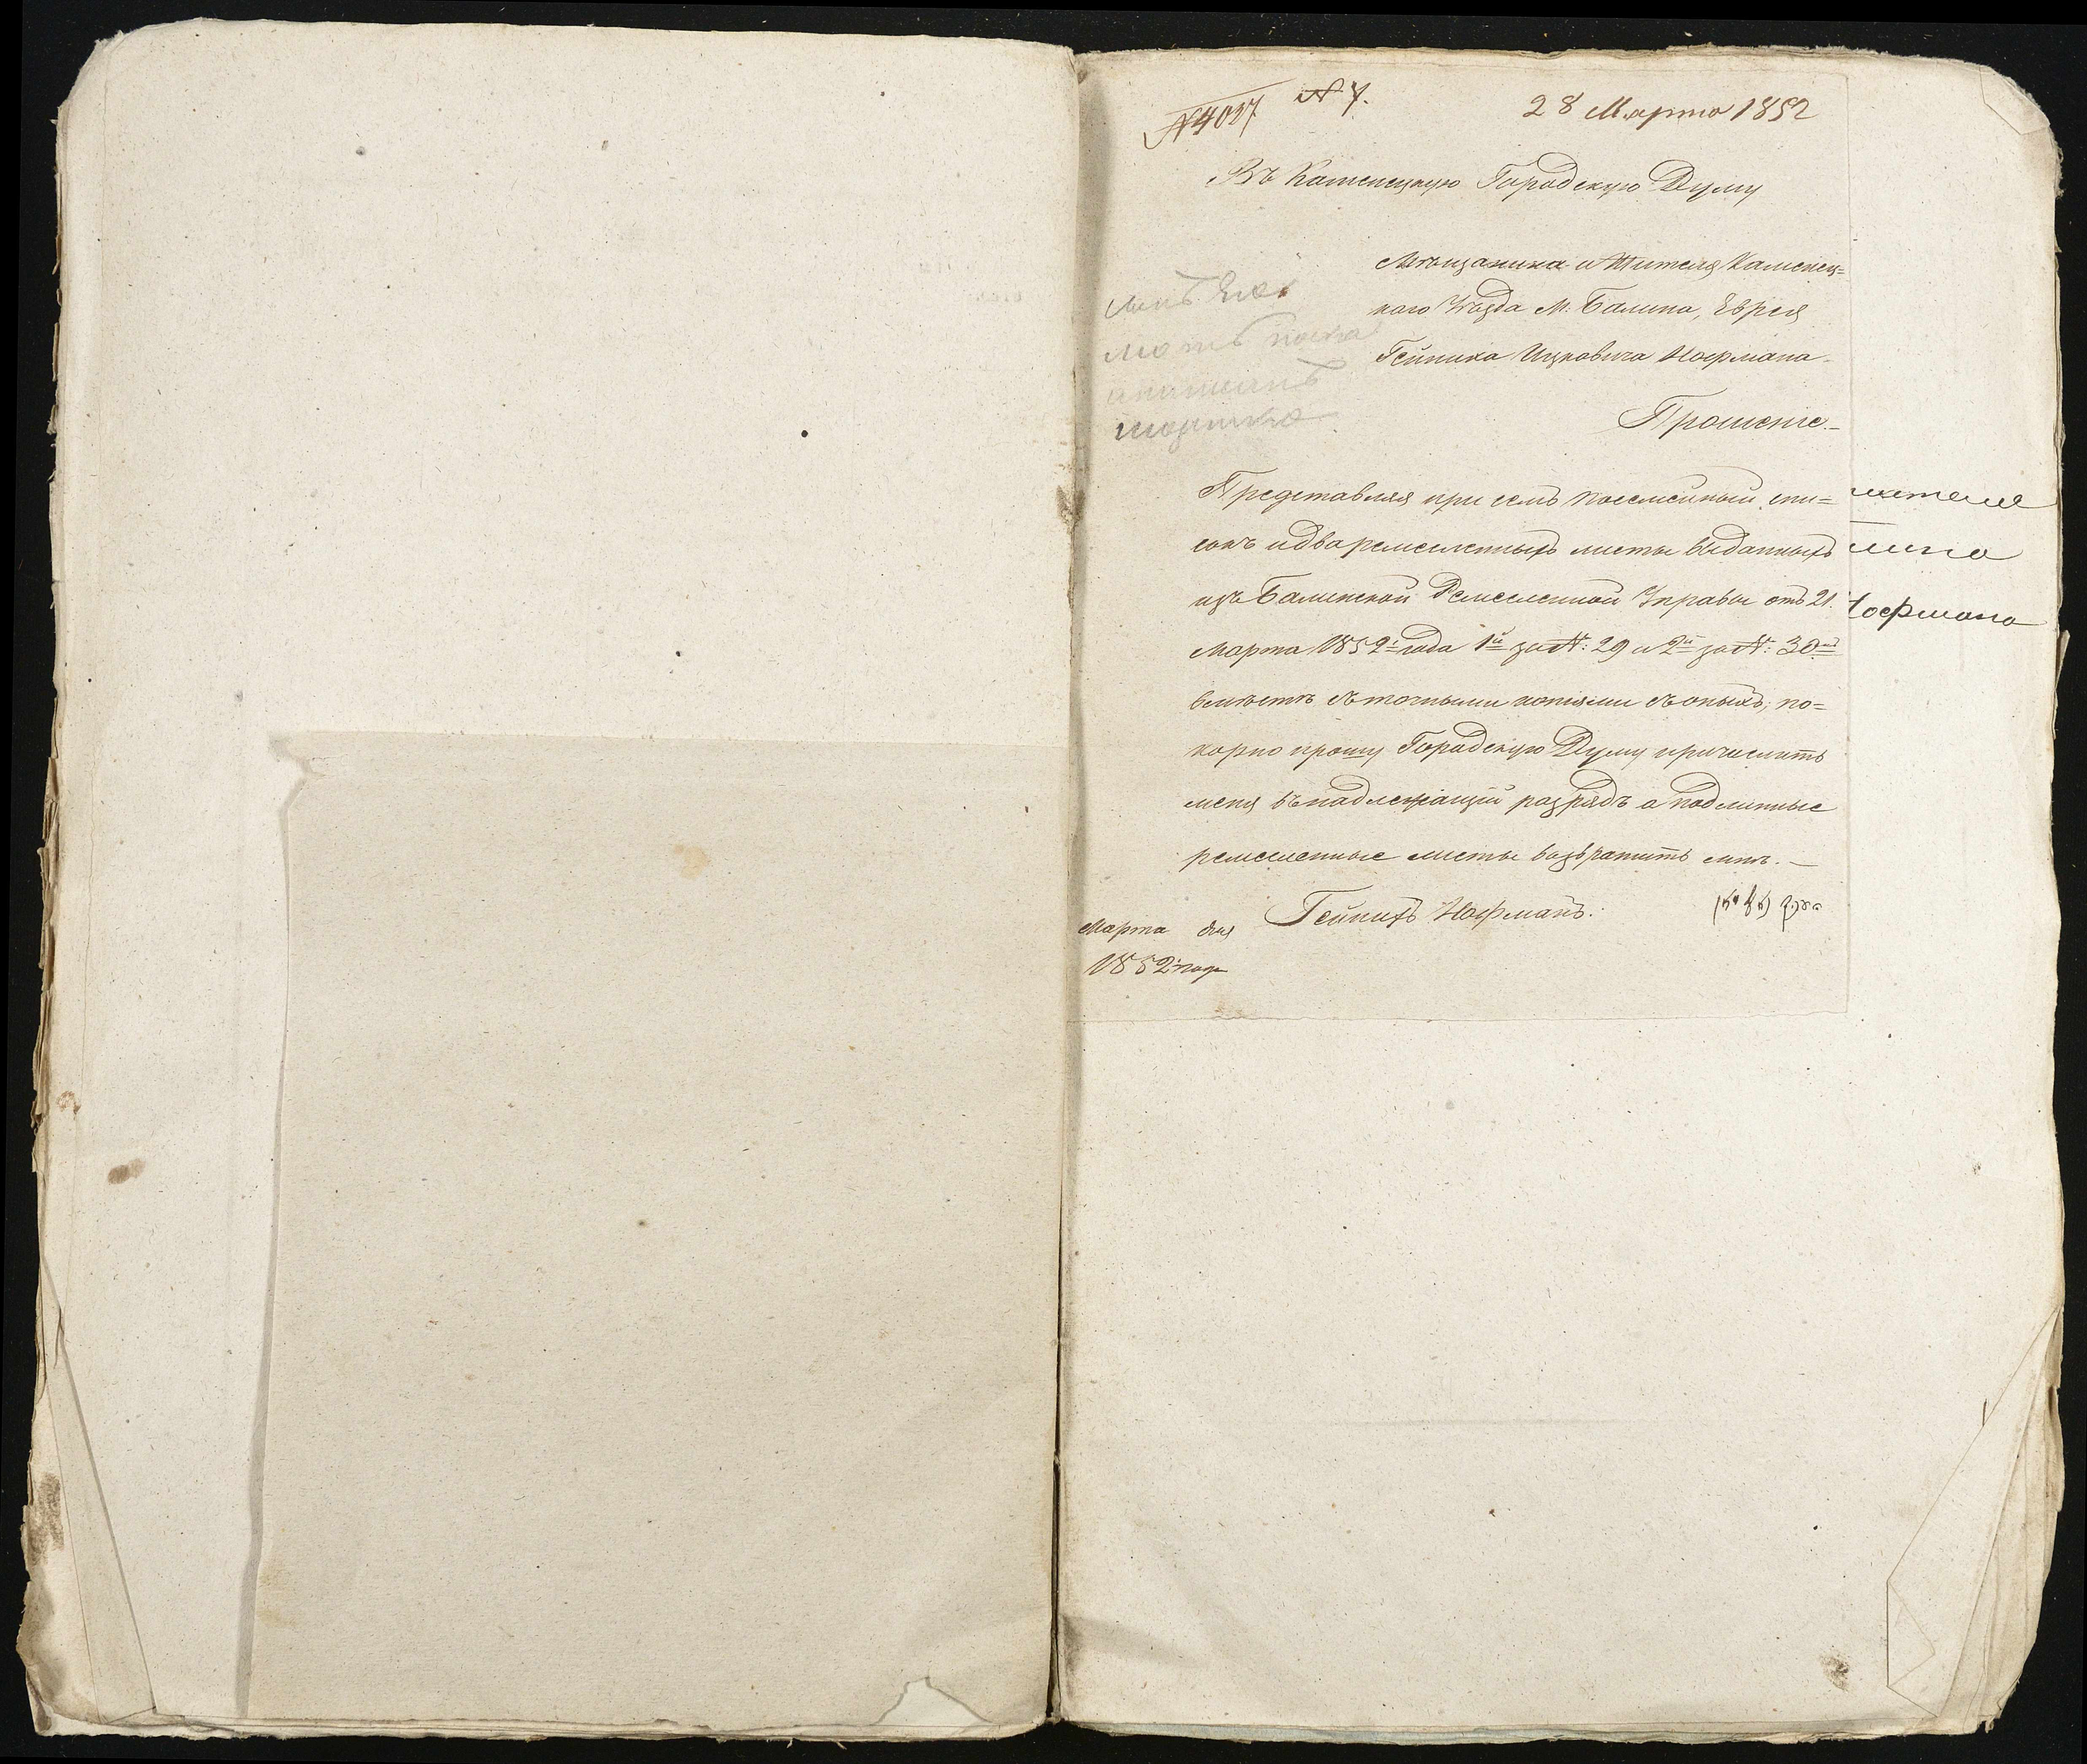 № 4027 № 4.
28 Марта 1852
Въ Каменецкую Городскую Думу
Мѣщанина и Жителя Каменец=
каго Уѣзда М: Балина, Еврея
Гейниха Ицковича Нофмана
Прошеніе.
Представляя при семъ посемейный спи=
сокъ и два ремесленныхъ листы выданныхъ
изъ Балинской Ремесленной Управы отъ 21.
Марта 1852 года 1й за №: 29 и 2й за №: 30мъ
вмѣстѣ съ точными копіями съ оныхъ, по=
корно прошу Городскую Думу причислить
меня въ надлежащій разрядъ а подлинные
ремесленные листы возвратить мнѣ.
Гейнихъ Нофманъ.
Марта дня
1852 года
жителя
лина
Нофмана